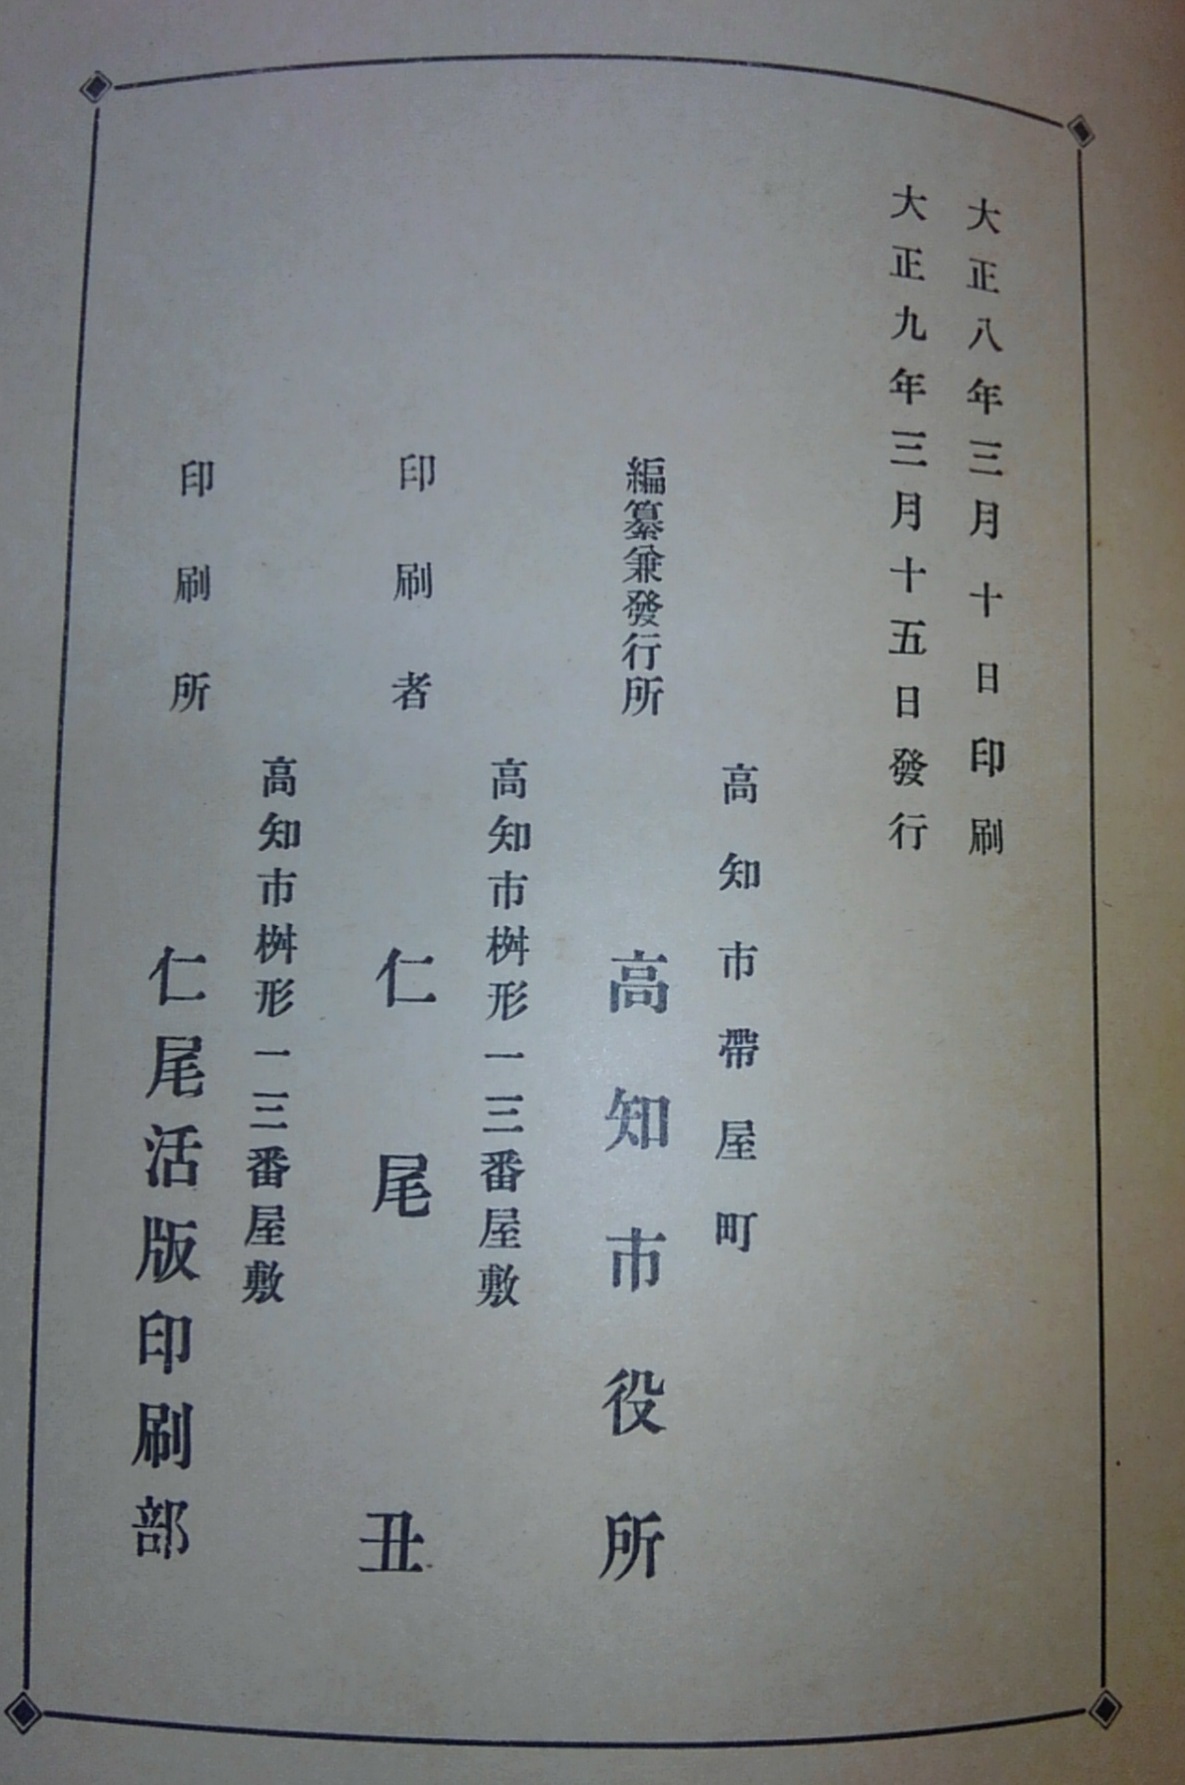 大正八年三月十日印刷
大正九年三月十五日發行
高知市帶屋町
編纂兼發行所 高知市役所
高知市桝形一三番屋敷
印刷者 仁尾丑
高知市桝形一三番屋敷
印刷所 仁尾活版印刷部